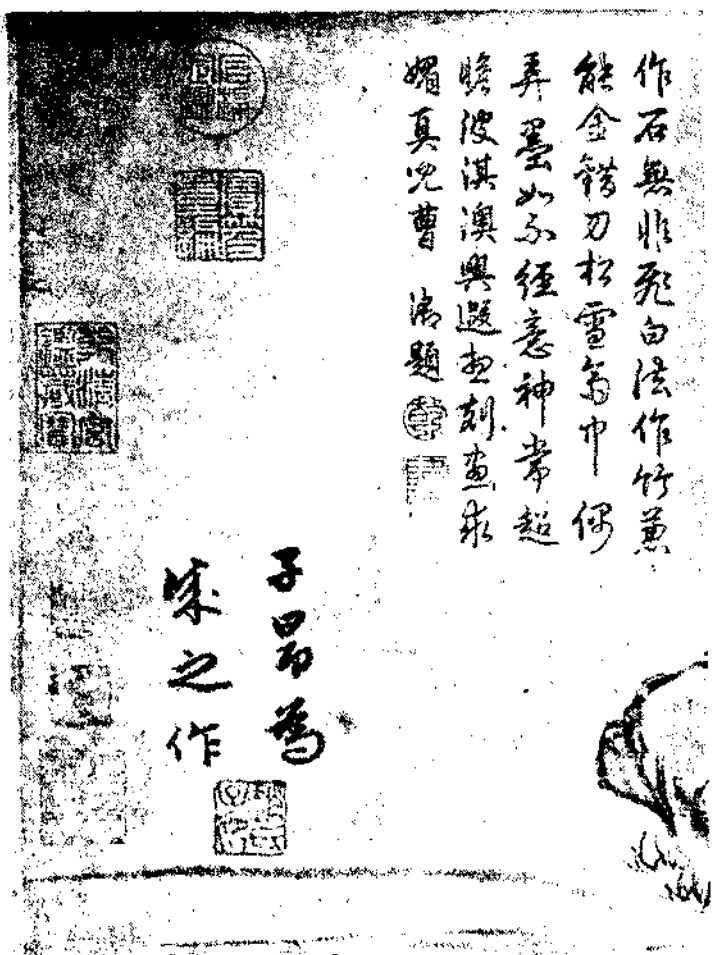 作石無非飛白法作竹兼
能金錯刀松雪齋中偶
弄墨如不經意神常超
瞻彼淇澳興遐想刻畫求
媚真兒曹 御題
子昂為
成之作